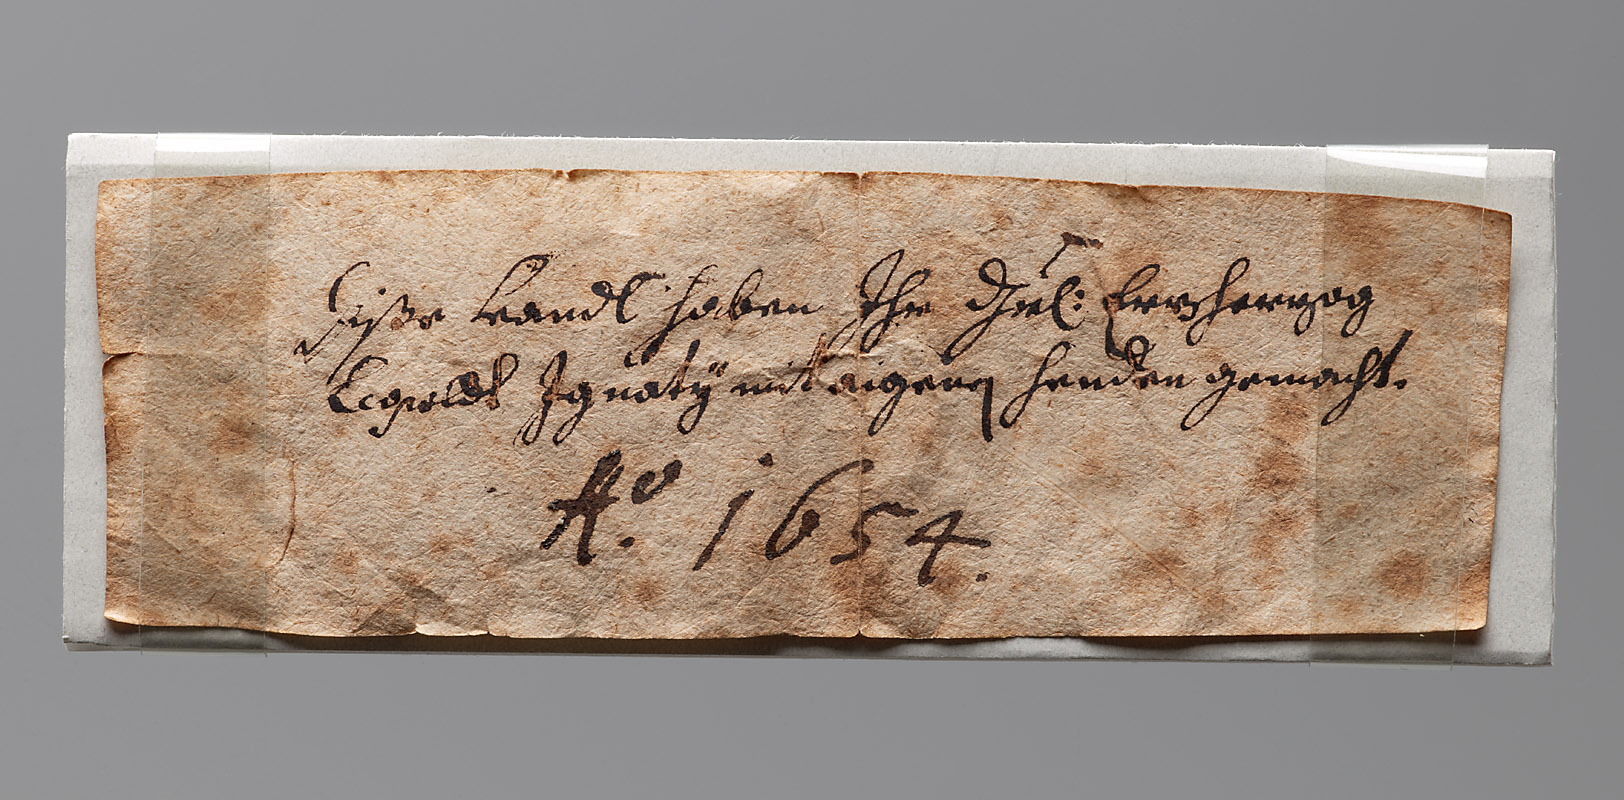 Diße Kandl haben Ihr Drl: Ertzhertzog
Leopoldt Ignatÿ mit aigenen henden gemacht.
Aº. 1654.